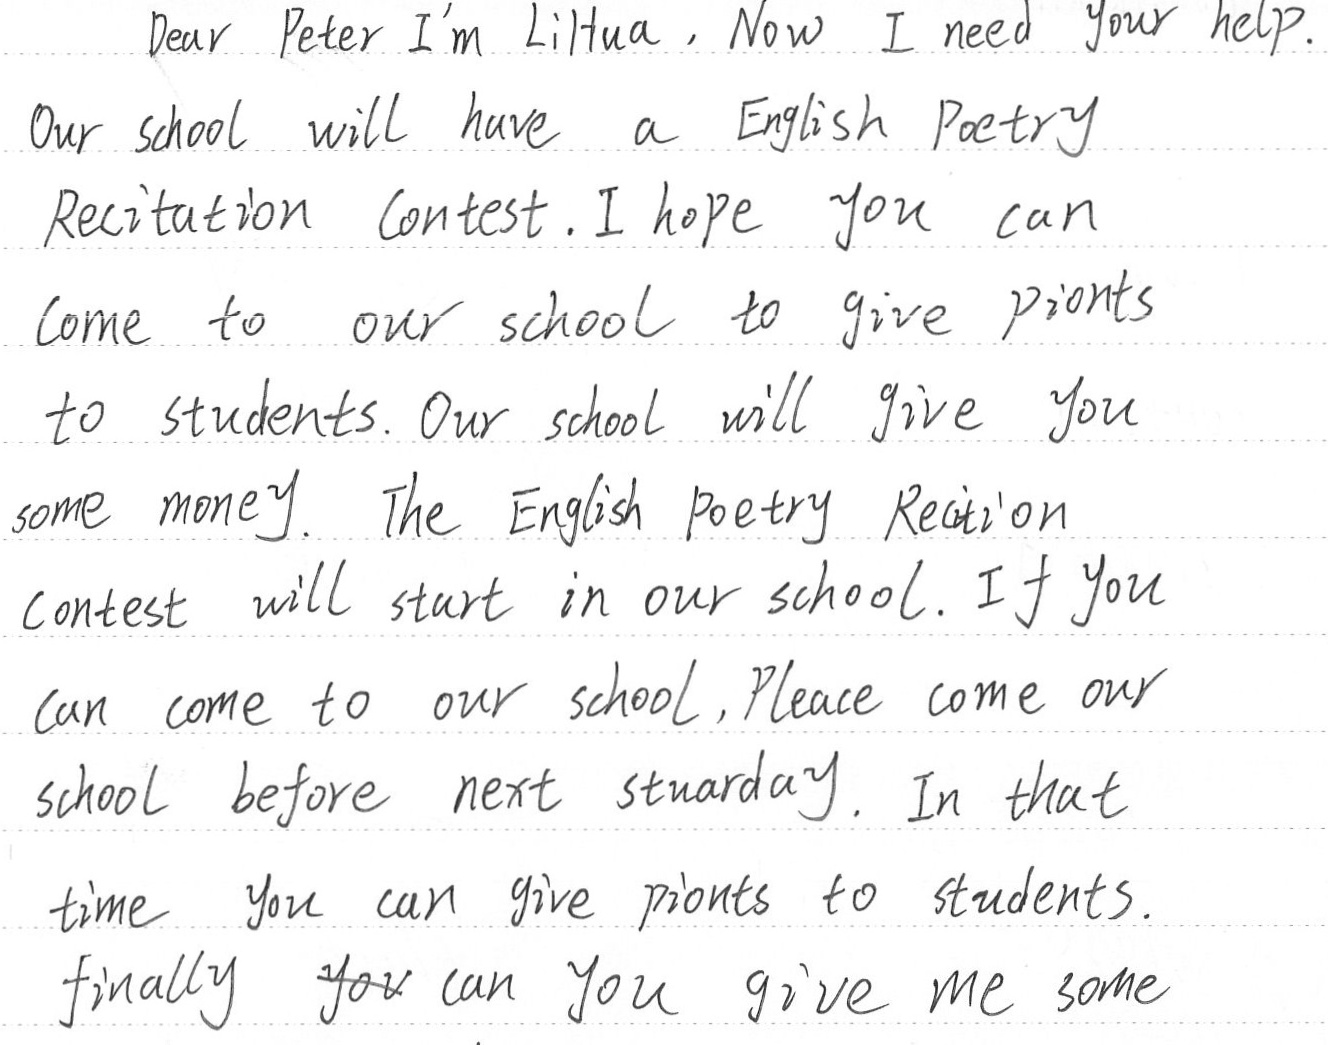 Dear Peter I'm LiHua, Now I need your help.
Our school will have a English Poetry
Recitation Contest. I hope you can
come to our school to give pionts
to students. Our school will give you
some money. The English Poetry Recition
Contest will start in our school. If you
can come to our school, Pleace come our
school before next stuarday. In that
time you can give pionts to students.
finally you can you give me some